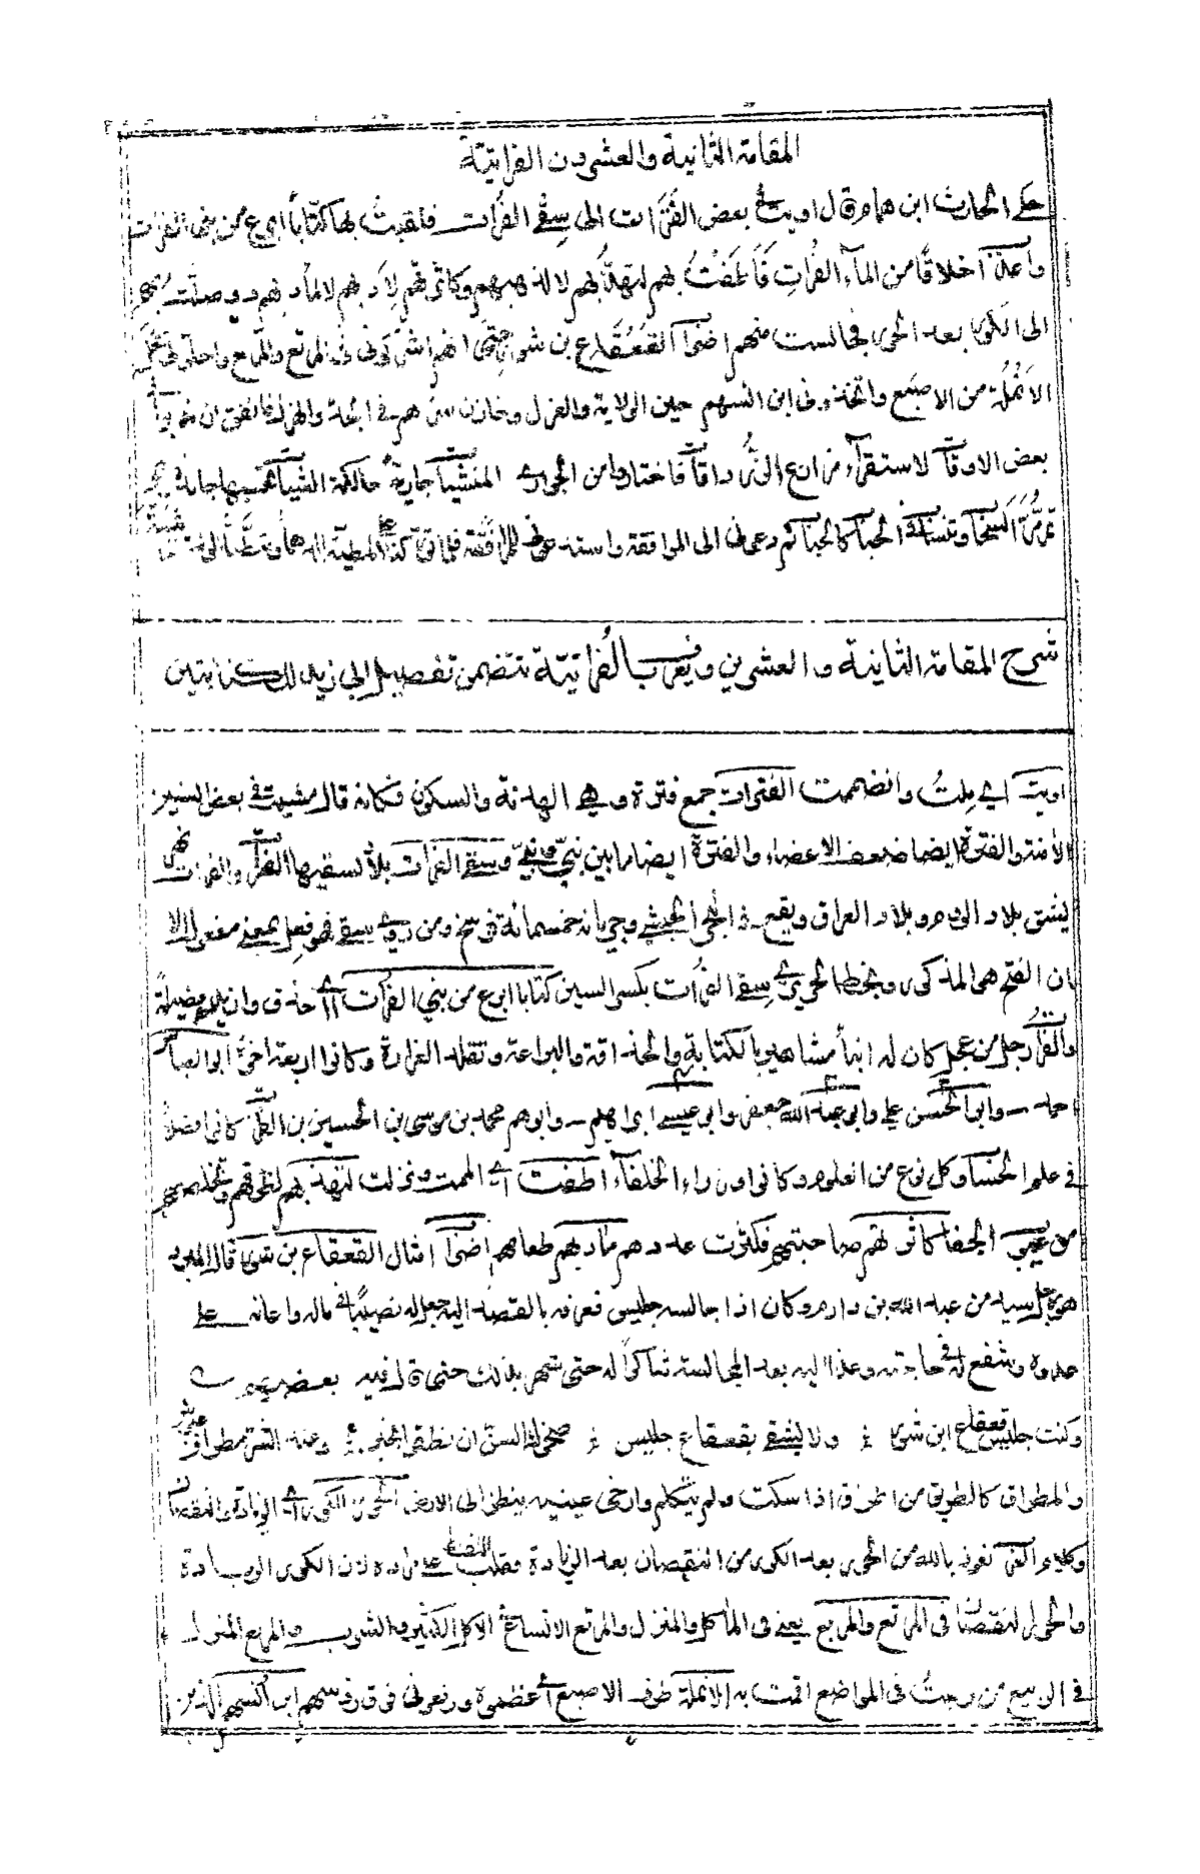 المقامة الثانية والعشرون الفراتية
حكى الحارث ابن همام قال اويت في بعض الفَتَرَات الى سِقْي الفُرات فلقيتُ بها كتّاباً ابرع من بني الفرات
واعذبَ اخلاقًا من الماءِ الفُراتِ فَاَطَفْتُ بهم لتهذّبهم لا لذهبهم وكاثرتهم لِادَبهم لا لمآدبهم
الى الكور بعد الحور فجالست منهم اضرابَ القَعْقَاع بن شور حتى انهم اشركوني في المرتع والمربع واحلّوني محلّ
الاَنْمُلَة من الاصبع واتخذوني ابن انسهم حين الولاية والعزل وخازن سرّهم في الجدّ والهزل فاتفق ان ندبوا
بعض الاوقات لاستقراء مزارع الرُّزداقات فاختاروا من الجواري المنشآت جارية حالكة الشيات تحسبها جامدة وهي
تمرُّ مَرَّ السحاب وتنساب على الحباب كالحباب ثم دعوني الى الموافقة واستدعوني للمرافقة فلما تورّكنا على المطية الدهماء وتبطّنّا
شرح المقامة الثانية والعشرين ويعرف بالفراتيّة تتضمن تفصيل ابي زيد للكتابتين
اويت اي مِلتُ وانضممت الفترات جمع فترة وهي الهدنة والسكون فكانه قال مشيت في بعض السنين
والفترة ايضا ضعف الاعضاء والفترة ايضا ما بين نبيّ ونبيّ وسقي الفرات بلاد يسقيها الفرات والفرات نهر
يشق بلاد الروم وبلاد العراق ويقع في البحر الحبشي وجريانه خمسمائة فرسخ ومن روى سقي فهو فعل بمعنى مفعول الا
ان الفتح هو المذكور وبخط الحريري سِقي الفرات بكسر السين كتابا ابرع من بني الفرات اي احذق وازيد فضيلة
والفرات رجل من عجل كان له ابناء مشاهير بالكتابة والحذاقة والبراعة وتقلد الوزارة وكانوا اربعة اخوة ابو العباس
احمد وابو الحسن علي وابو عبد الله جعفر وابو عيسى ابراهيم وابوهم محمد بن موسى بن الحسين بن الفرات كانوا افضل
في علم الحساب وكل نوع من العلوم وكانوا وزراء الخلفاء اطفت اي الممت ونزلت لتهذبهم لظرفهم وتخلصهم
من عيب الجفا كاثرتهم صاحبتهم فكثرت عددهم مآدبهم طعامهم اضراب امثال القعقاع بن شور قال المبرد
هو رجل سيد من عبد الله بن دارم وكان اذا جالسه جليس فعرفه بالقصد اليه جعل له نصيبًا في ماله واعانه على
عدوه وشفع له في حاجته وغدا اليه بعد المجالسة شاكرًا له حتى شهر بذلك حتى قال فيه بعضهم
وكنت جليس قعقاع ابن شور ؛ ولا يشقى بقعقاع جليس ؛ ضحوك السن ان نطقوا بخير ؛ وعند الشر مطراق عبوس
والمطراق كالطريق من اطراق اذا سكت ولم يتكلم وارخى عينيه ينظر الى الارض الحور الكور اي الزيادة والنقصان
وكلام العرب نعوذ بالله من الحور بعد الكور من النقصان بعد الزيادة فقلب اللفظ على مراده لان الكور الزيادة
والحور النقصان في المرتع والمربع يعني في المأكل والمنزل والمرتع الاتساع في الاكل الكثير والشرب والمربع المنزل
في الربيع من ربعتُ في المواضع اقمت به الانملة طرف الاصبع اي عظموه ورفعوني فوق رؤسهم ابن انسهم الذي